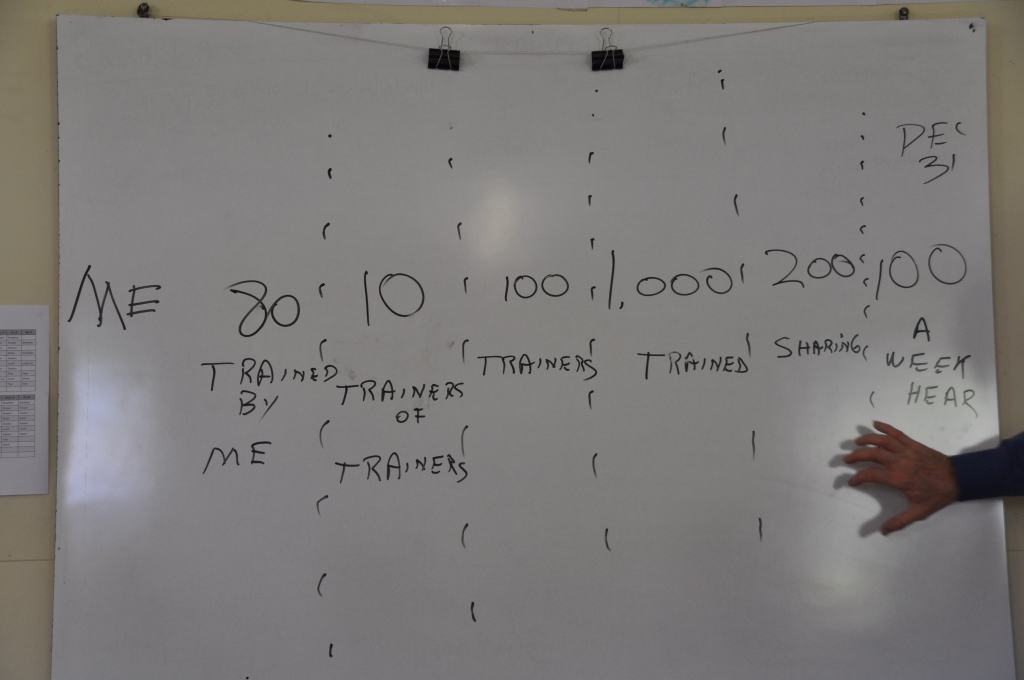 DEC
31
ME 80 10 100 1,000 200 100
TRAINED
BY
ME
TRAINERS
OF
TRAINERS
TRAINERS
TRAINED
SHARING
A
WEEK
HEAR